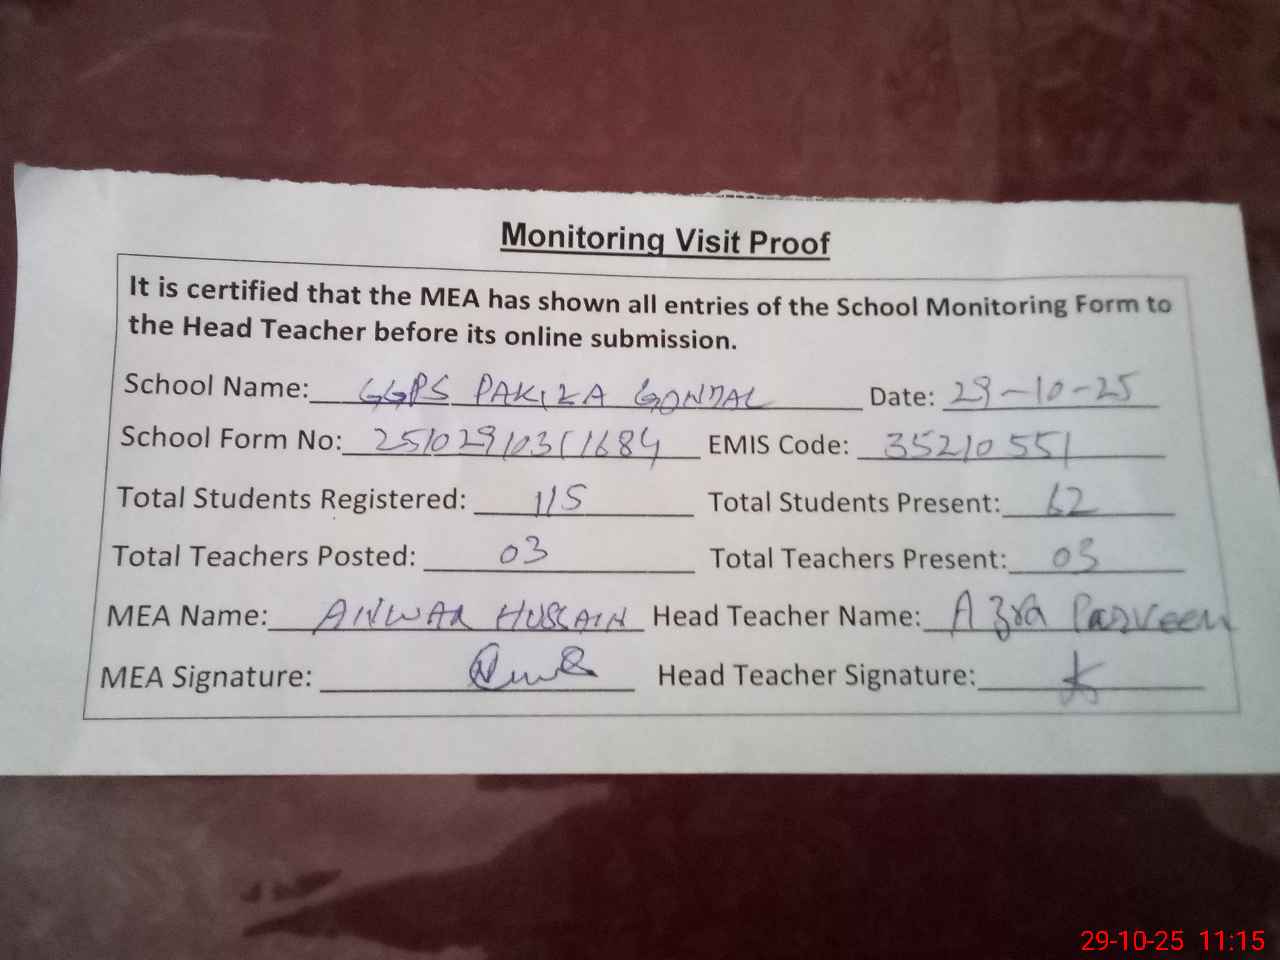 Monitoring Visit Proof
It is certified that the MEA has shown all entries of the School Monitoring Form to
the Head Teacher before its online submission.
School Name: GGPS PAKIZA GONDAL Date: 29-10-25
School Form No: 251029103511684 EMIS Code: 35210551
Total Students Registered: 115 Total Students Present: 62
Total Teachers Posted: 03 Total Teachers Present: 03
MEA Name: ANWAR HUSSAIN Head Teacher Name: Azra Parveen
MEA Signature: Head Teacher Signature:
29-10-25 11:15